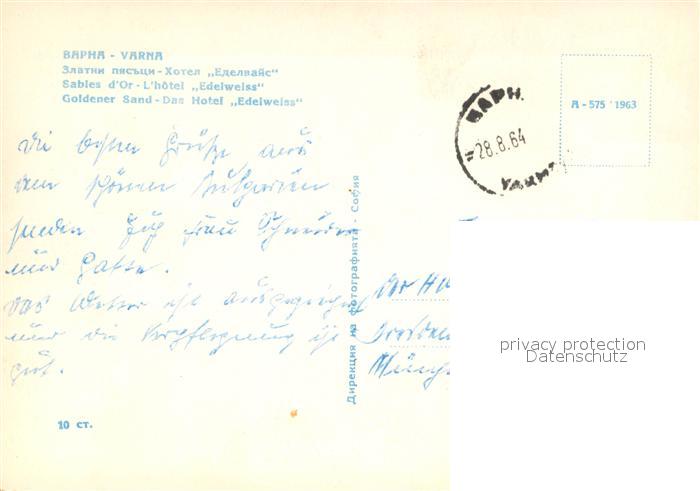 ВАРНА - VARNA
Златни пясъци - Хотел „Еделвайс"
Sables d'Or - L'hôtel „Edelweiss"
Goldener Sand - Das Hotel „Edelweiss"
А - 575 1963
ВАРН
28.8.64
Die besten Grüße aus
dem schönen Bulgarien
senden Frau Schneider
und Gatte.
Das Wetter ist ausgezeichnet
und die Verpflegung ist
gut.
Дирекция на фотографията - София
Dresden
Münch
privacy protection
Datenschutz
10 ст.